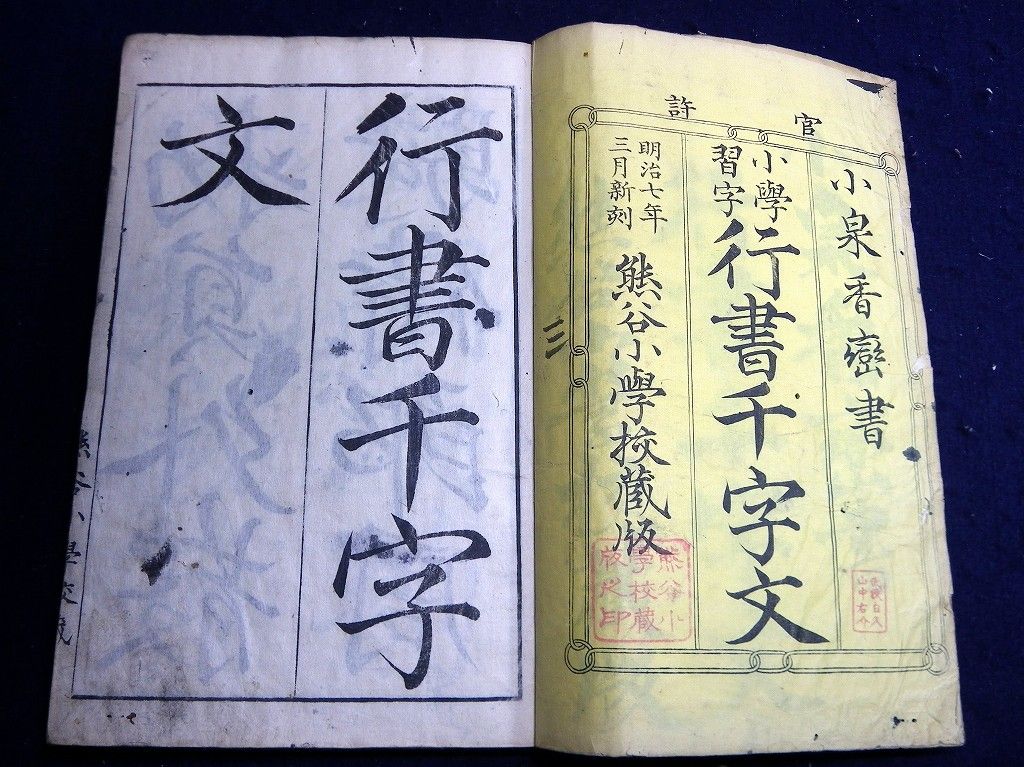 官許
小泉香巒書
小學
習字
行書千字文
明治七年
三月新刻
熊谷小學校蔵版
熊谷小
學校蔵
版之印
三
行書千字
文
熊谷小學校蔵